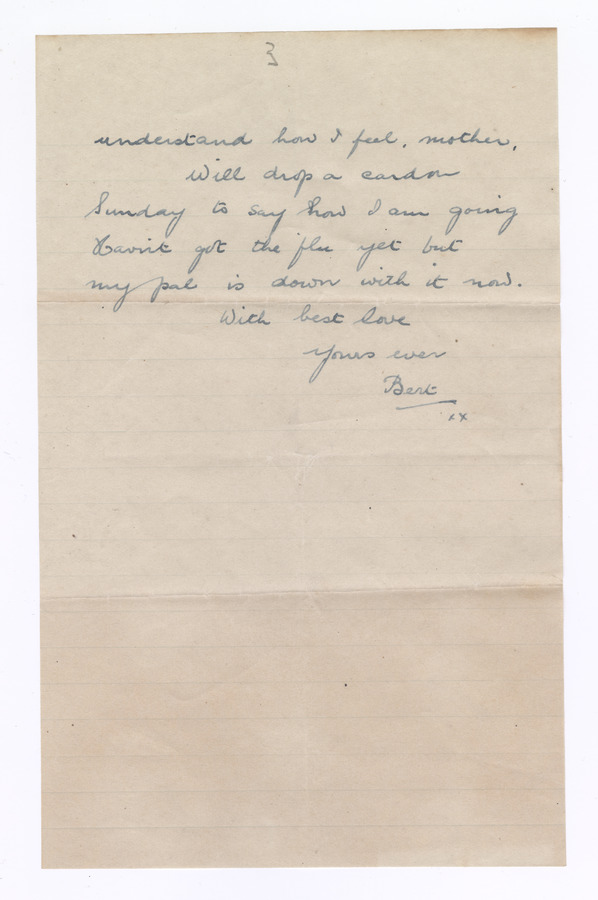 3
understand how I feel, mother.
Will drop a card on
Sunday to say how I am going
Havnt got the flu yet but
my pal is down with it now.
With best love
Yours ever
Bert
xx